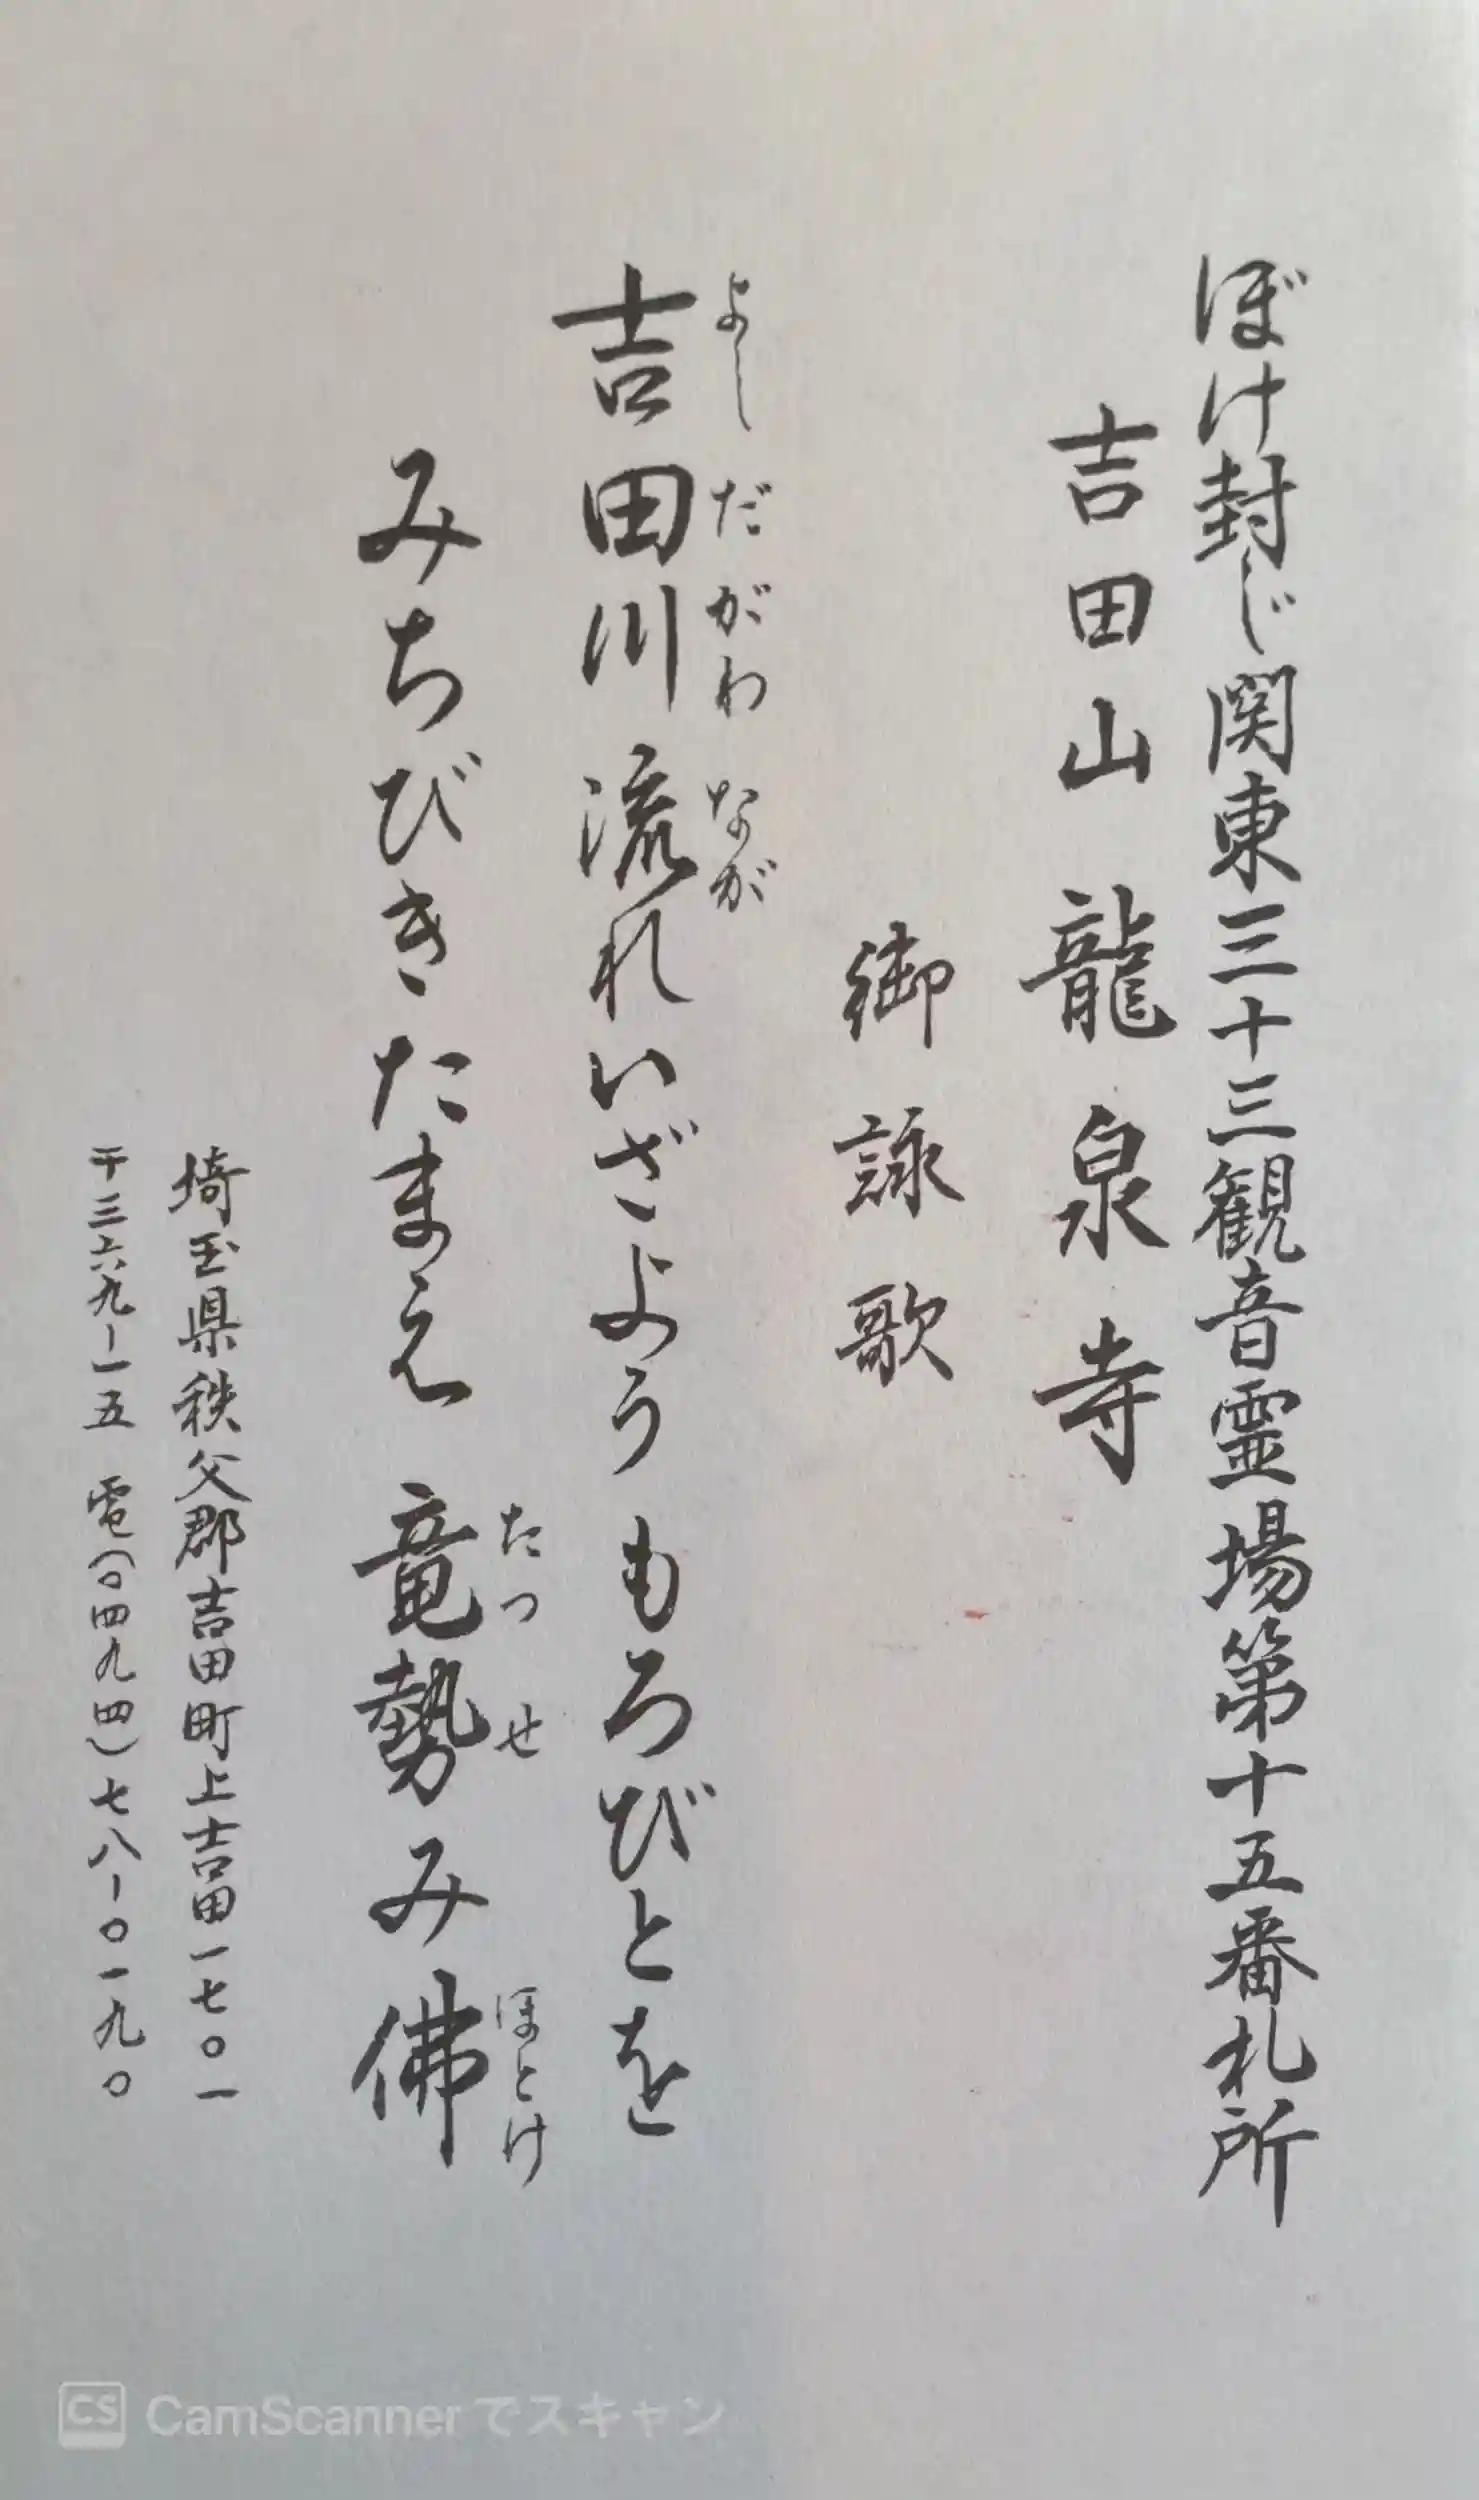 ぼけ封じ関東三十三観音霊場第十五番札所
吉田山 龍泉寺
御詠歌
よしだがわ なが
吉田川 流れいざよう もろびとを
たつせ ほとけ
みちびきたまえ 竜勢み佛
埼玉県秩父郡吉田町上吉田一七〇一
〒三六九ー一五 電(〇四九四)七八ー〇一九〇
CS CamScannerでスキャン